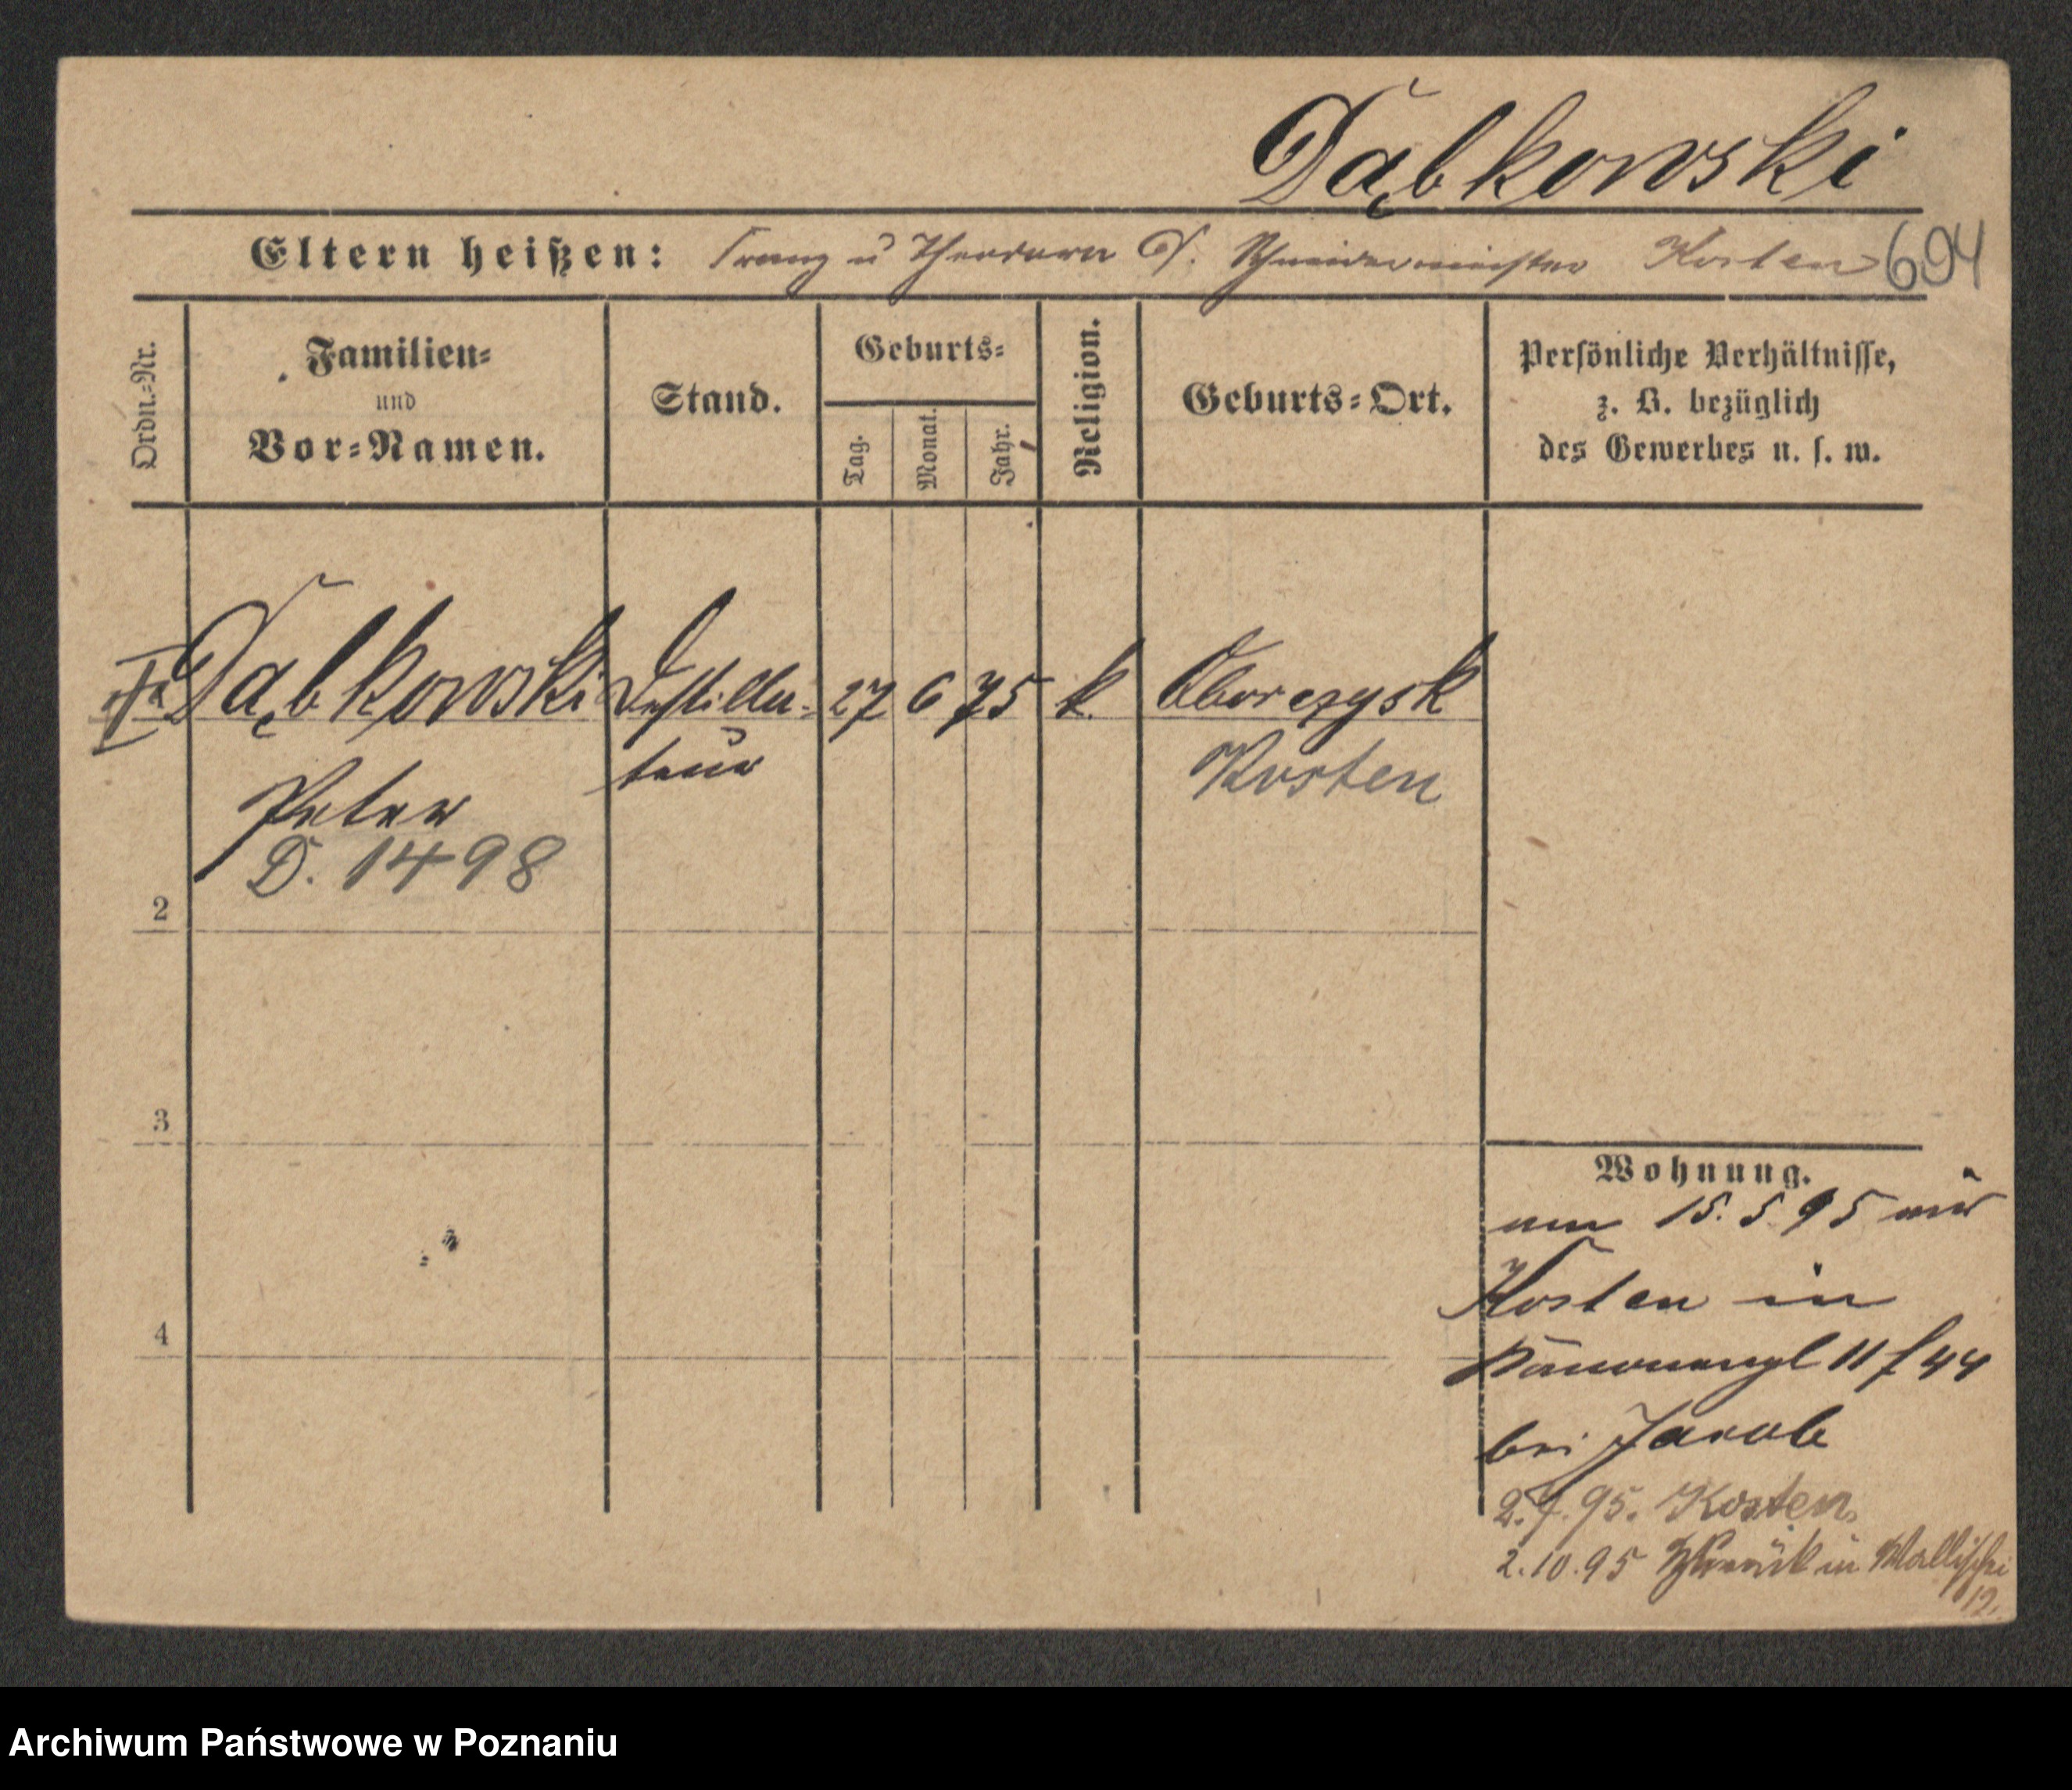 Dąbkowski
Eltern heißen: Franz u Theodora D. Schneidermeister Kosten 694
Ordn.-Nr.
Familien-
und
Vor-Namen.
Stand.
Geburts-
Tag.
Monat.
Jahr.
Religion.
Geburts-Ort.
Persönliche Verhältnisse,
z. B. bezüglich
des Gewerbes u. s. w.
Dąbkowski Destilla- 27 6 75 k. Oborzysk
teur Kosten
Peter
D. 1498
2
3
4
Wohnung.
am 15.5.95 aus
Kosten in
11 f 44
bei Jacob
2.7.95. Kosten
2.10.95 zurück in Wallischei
12.